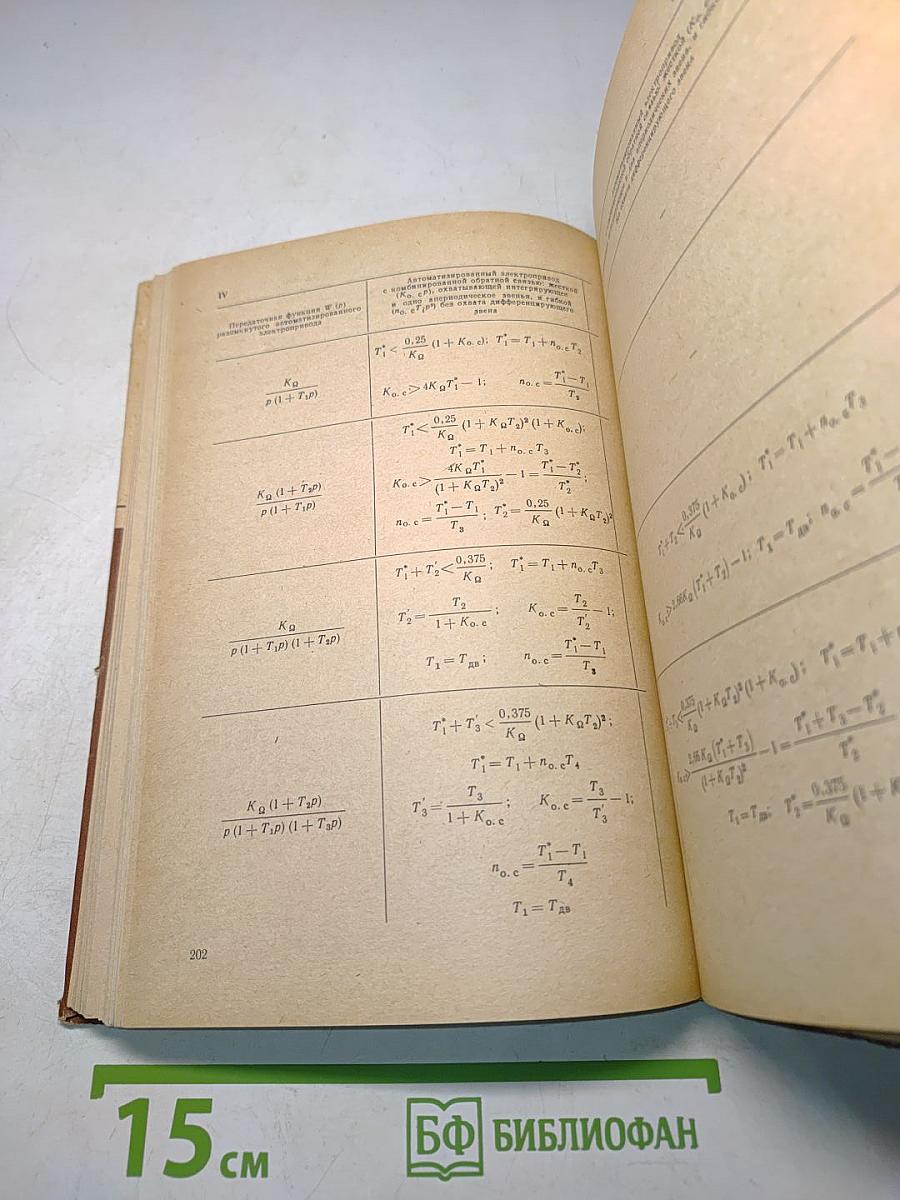 IV
Передаточная функция W (p)
разомкнутого автоматизированного
электропривода
Автоматизированный электропривод
с комбинированной обратной связью: жесткой
(Kо. сp), охватывающей интегрирующее
и одно апериодическое звенья, и гибкой
без охвата дифференцирующего
звена
KΩ / p (1 + T₁p)
T₁* < 0,25 / KΩ (1 + Kо. с); T₁* = T₁ + nо. сT₂
Kо. с > 4KΩT₁* − 1; nо. с = (T₁* − T₁) / T₂
KΩ (1 + T₂p) / p (1 + T₁p)
T₁* < 0,25 / KΩ (1 + KΩT₂)² (1 + Kо. с);
T₁* = T₁ + nо. сT₃
Kо. с > 4KΩT₁* / (1 + KΩT₂)² − 1 = (T₁* − T₂*) / T₂*;
nо. с = (T₁* − T₁) / T₃; T₂* = 0,25 / KΩ (1 + KΩT₂)²
KΩ / p (1 + T₁p) (1 + T₂p)
T₁* + T₂′ < 0,375 / KΩ; T₁* = T₁ + nо. сT₃
T₂′ = T₂ / (1 + Kо. с); Kо. с = T₂ / T₂′ − 1;
T₁ = Tдв; nо. с = (T₁* − T₁) / T₃
KΩ (1 + T₂p) / p (1 + T₁p) (1 + T₃p)
T₁* + T₃′ < 0,375 / KΩ (1 + KΩT₂)²;
T₁* = T₁ + nо. сT₄
T₃′ = T₃ / (1 + Kо. с); Kо. с = T₃ / T₃′ − 1;
nо. с = (T₁* − T₁) / T₄
T₁ = Tдв
202
T₁* + T₂ < 0,375 / KΩ (1 + Kо. с); T₁* = T₁ + nо. сT₃
Kо. с > 2,66KΩ (T₁* + T₂) − 1; T₁ = Tдв; nо. с = T₁* −
0,375 / KΩ (1 + KΩT₂)² (1 + Kо. с); T₁* = T₁ +
2,66KΩ (T₁* + T₃) / (1 + KΩT₂)² − 1 = (T₁* + T₃ − T₂*) / T₂*
T₁ = Tдв; T₂* = 0,375 / KΩ (1 +
15 см
БФ БИБЛИОФАН